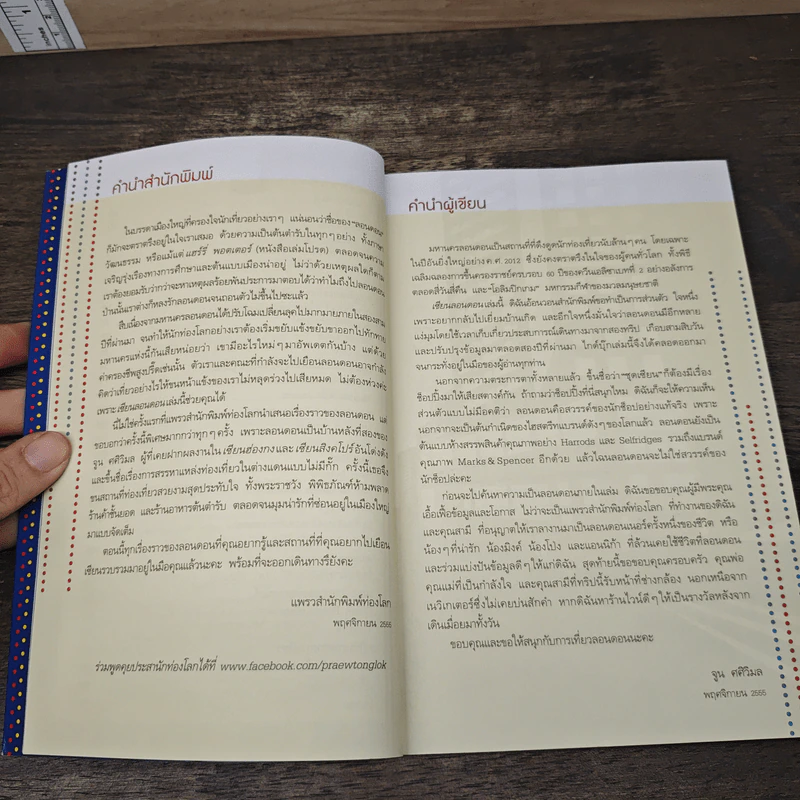 คำนำสำนักพิมพ์
ในบรรดาเมืองใหญ่ที่ครองใจนักเที่ยวอย่างเราๆ แน่นอนว่าชื่อของ “ลอนดอน”
ก็มักจะตราตรึงอยู่ในใจเราเสมอ ด้วยความเป็นต้นตำรับในทุกๆ อย่าง ทั้งภาษา
วัฒนธรรม หรือแม้แต่ แฮร์รี่ พอตเตอร์ (หนังสือเล่มโปรด) ตลอดจนความ
เจริญรุ่งเรืองทางการศึกษาและต้นแบบเมืองน่าอยู่ ไม่ว่าด้วยเหตุผลใดก็ตาม
เราต้องยอมรับว่ากว่าจะหาเหตุผลร้อยพันประการมาตอบได้ว่าทำไมถึงไปลอนดอน
บ้านนั้นเราต่างก็หลงรักลอนดอนจนถอนตัวไม่ขึ้นไปซะแล้ว
สืบเนื่องจากมหานครลอนดอนได้ปรับโฉมเปลี่ยนลุคไปมากมายภายในสองสาม
ปีที่ผ่านมา จนทำให้นักท่องโลกอย่างเราต้องเริ่มขยับแข้งขยับขาออกไปทักทาย
มหานครแห่งนี้กันเสียหน่อยว่า เขามีอะไรใหม่ๆ มาอัพเดตกันบ้าง แต่ด้วย
ค่าครองชีพสูงปรี๊ดเช่นนั้น ตัวเราและคณะที่กำลังจะไปเยือนลอนดอนอาจกำลัง
คิดว่าเที่ยวอย่างไรให้ขนหน้าแข้งของเราไม่หลุดร่วงไปเสียหมด ไม่ต้องห่วงค่ะ
เพราะ เซียนลอนดอน เล่มนี้ช่วยคุณได้
นี่ไม่ใช่ครั้งแรกที่แพรวสำนักพิมพ์ท่องโลกนำเสนอเรื่องราวของลอนดอน แต่
ขอบอกว่าครั้งนี้พิเศษมากกว่าทุกๆ ครั้ง เพราะลอนดอนเป็นบ้านหลังที่สองของ
จูน ศศิวิมล ผู้ที่เคยฝากผลงานใน เซียนฮ่องกง และ เซียนสิงคโปร์ อันโด่งดัง
และขึ้นชื่อเรื่องการสรรหาแหล่งท่องเที่ยวในต่างแดนแบบไม่มีกั๊ก ครั้งนี้เธอจึง
ขนสถานที่ท่องเที่ยวสวยงามสุดประทับใจ ทั้งพระราชวัง พิพิธภัณฑ์ห้ามพลาด
ร้านค้าชั้นยอด และร้านอาหารต้นตำรับ ตลอดจนมุมน่ารักที่ซ่อนอยู่ในเมืองใหญ่
มาแบบจัดเต็ม
ตอนนี้ทุกเรื่องราวของลอนดอนที่คุณอยากรู้และสถานที่ที่คุณอยากไปเยือน
เซียนรวบรวมมาอยู่ในมือคุณแล้วนะคะ พร้อมที่จะออกเดินทางรึยังคะ
แพรวสำนักพิมพ์ท่องโลก
พฤศจิกายน 2555
ร่วมพูดคุยประสานักท่องโลกได้ที่ www.facebook.com/praewtonglok
คำนำผู้เขียน
มหานครลอนดอนเป็นสถานที่ที่ดึงดูดนักท่องเที่ยวนับล้านๆ คน โดยเฉพาะ
ในปีอันยิ่งใหญ่อย่าง ค.ศ. 2012 ซึ่งยังคงตราตรึงในใจของผู้คนทั่วโลก ทั้งพิธี
เฉลิมฉลองการขึ้นครองราชย์ครบรอบ 60 ปีของควีนเอลิซาเบทที่ 2 อย่างอลังการ
ตลอดสี่วันสี่คืน และ “โอลิมปิกเกม” มหกรรมกีฬาของมวลมนุษยชาติ
เซียนลอนดอน เล่มนี้ ดิฉันอ้อนวอนสำนักพิมพ์ขอทำเป็นการส่วนตัว ใจหนึ่ง
เพราะอยากกลับไปเยี่ยมบ้านเก่า และอีกใจหนึ่งมั่นใจว่าลอนดอนมีอีกหลาย
แง่มุมโดยใช้เวลาเก็บเกี่ยวประสบการณ์เดินทางมาจากสองทริป เกือบสามสิบวัน
และปรับปรุงข้อมูลมาตลอดสองปีที่ผ่านมา ไกด์บุ๊กเล่มนี้จึงได้คลอดออกมา
จนกระทั่งอยู่ในมือของผู้อ่านทุกท่าน
นอกจากความตระการตาทั้งหลายแล้ว ขึ้นชื่อว่า “ชุดเซียน” ก็ต้องมีเรื่อง
ช็อปปิ้งมาให้เสียสตางค์กัน ถ้าถามว่าช็อปปิ้งที่นี่สนุกไหม ดิฉันก็จะให้ความเห็น
ส่วนตัวแบบไม่มีอคติว่า ลอนดอนคือสวรรค์ของนักช็อปอย่างแท้จริง เพราะ
นอกจากจะเป็นต้นกำเนิดของไฮสตรีทแบรนด์ดังๆ ของโลกแล้ว ลอนดอนยังเป็น
ต้นแบบห้างสรรพสินค้าคุณภาพอย่าง Harrods และ Selfridges รวมถึงแบรนด์
คุณภาพ Marks & Spencer อีกด้วย แล้วไฉนลอนดอนจะไม่ใช่สวรรค์ของ
นักช็อปล่ะคะ
ก่อนจะไปค้นหาความเป็นลอนดอนภายในเล่ม ดิฉันขอขอบคุณผู้มีพระคุณ
เอื้อเฟื้อข้อมูลและโอกาส ไม่ว่าจะเป็นแพรวสำนักพิมพ์ท่องโลก ที่ทำงานของดิฉัน
และคุณสามี ที่อนุญาตให้เราลางานมาเป็นลอนดอนเนอร์ครั้งหนึ่งของชีวิต หรือ
น้องๆ ที่น่ารัก น้องมิงค์ น้องโป่ง และแอนนิก้า ที่ล้วนเคยใช้ชีวิตที่ลอนดอน
และร่วมแบ่งปันข้อมูลดีๆ ให้แก่ดิฉัน สุดท้ายนี้ขอขอบคุณครอบครัว คุณพ่อ
คุณแม่ที่เป็นกำลังใจ และคุณสามีที่ทริปนี้รับหน้าที่ช่างกล้อง นอกเหนือจาก
เนวิเกเตอร์ซึ่งไม่เคยบ่นสักคำ หากดิฉันหาร้านไวน์ดีๆ ให้เป็นรางวัลหลังจาก
เดินเมื่อยมาทั้งวัน
ขอบคุณและขอให้สนุกกับการเที่ยวลอนดอนนะคะ
จูน ศศิวิมล
พฤศจิกายน 2555